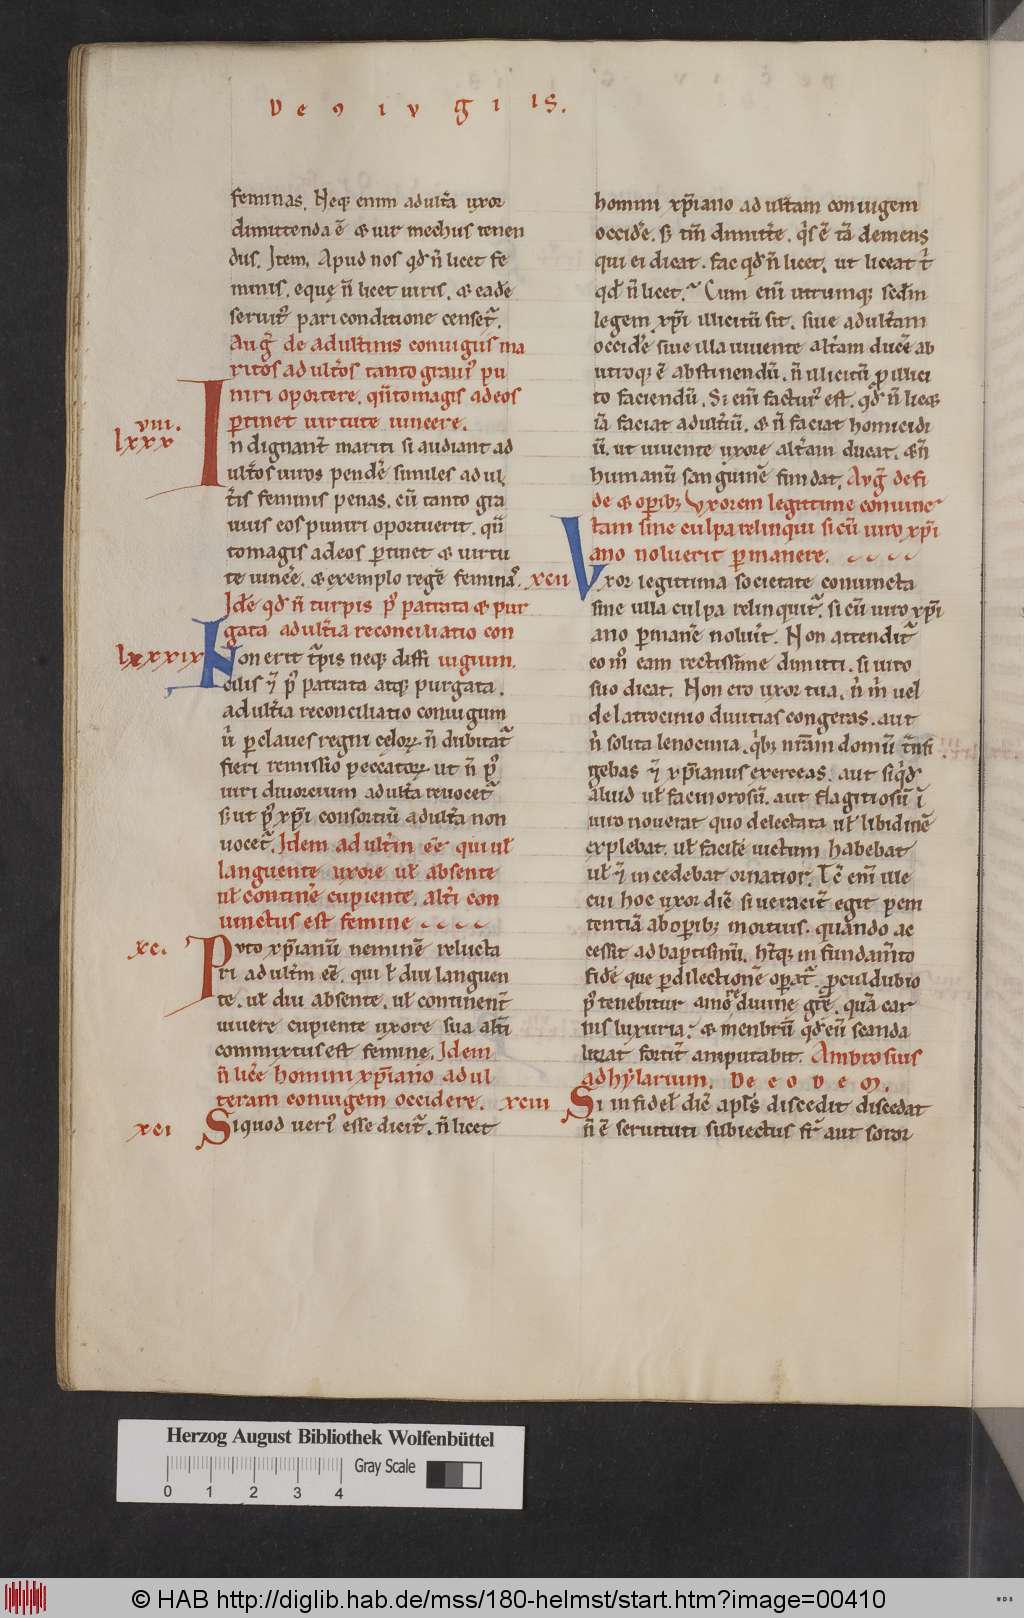 De 9 i v g i is.
feminas. Neq; enim adult̄a uxor
dimittenda ē & uir mechus tenen
dus. Item. Apud nos qd̄ n̄ licet fe
minis. eque n̄ licet uiris. & eadē
seruit᷒ pari conditione censet᷑.
Aug̅ de adult̄inis coniugiis ma
ritos adult̄os tanto graui᷒ pu
niri oportere. qn̄to magis ad eos
ꝑtinet uirtute uincere.
viii.
lxxx
In dignant᷑ mariti si audiant ad
ult̄os uiros pendē similes adul
t̄is feminis penas. cū tanto gra
uius eos puniri oportuerit. qn̄
to magis ad eos ꝑtinet & uirtu
te uincē. & exemplo regē feminas.
Idē qd̄ n̄ turpis p᷒ patrata & pur
gata adult̄ia reconciliatio con
lxxxix
Non erit t᷑pis neq; diffi uigium.
cilis & p᷒ patrata atq; purgata
adult̄ia reconciliatio coniugum
ū ꝑ claues regni celoꝝ n̄ dubitat᷑
fieri remissio peccatoꝝ ut n̄ p᷒
uiri diuorcium adult̄a reuocet᷑
s; ut p᷒ xp̄i consortiū adult̄a non
uocet᷑. Idem adult̄in eē qui ul̄
languente uxore ul̄ absente
ul̄ continē cupiente. alt̄i con
iunctus est femine
xc.
Puto xp̄ianū neminē relucta
ri adult̄m eē. qui ul̄ diu languen
te. ul̄ diu absente. ul̄ continent᷑
uiuere cupiente uxore sua alt̄i
commixtus est femine. Idem
n̄ licē homini xp̄iano adul
teram coniugem occidere.
xci
Siquod ueri᷒ esse dicit᷑. n̄ licet
homini xp̄iano adult̄am coniugem
occidē. s; tm̄ dimitt̄e. q̇s ē tā demens
qui ei dicat. fac qd̄ n̄ licet. ut liceat t̄
qd̄ n̄ licet. Cum eni᷒ utrumq; sedm̄
legem xp̄i illicitū sit. siue adult̄am
occidē siue illa uiuente alt̄am ducē ab
utroq; ē abstinendū. n̄ illicitū ꝑ illici
to faciendū. Si eni᷒ factur᷒ est. qd̄ n̄ licet
iā faciat adult̄iū. & n̄ faciat homicidi
ū. ut uiuente uxore alt̄am ducat. & n̄
humanū sanguinē fundat. Aug̅ de fi
de & oꝑib; Uxorem legitime coniunc
tam sine culpa relinqui si cū uiro xp̄i
ano noluerit ꝑmanere.
xcii
Uxor legittima societate coniuncta
sine ulla culpa relinquit᷑. si cū uiro xp̄i
ano ꝑmanē noluit̄. Non attendit᷑
eo m° eam rectissime dimitti. si uiro
suo dicat. Non ero uxor tua. n̄ m̄ uel
de latrocinio diuitias congeras. aut
n̄ solita lenocinia. q̇b; nr̄am domū t̄nsi
gebas & xp̄ianus exerceas. aut siq̇d
aliud ul̄ facinorosū. aut flagitiosū ī
uiro nouerat quo delectata ul̄ libidinē
explebat. ul̄ facilē uictum habebat
ul̄ & incedebat ornatior. Tc̄ eni᷒ ille
cui hoc uxor dic̄ si ueracit̄ egit peni
tentiā ab oꝑib; mortuis. quando ac
cessit ad baptismū. ht̄q; in fundam̄to
fidē que ꝑ dilectionē oꝑat᷑. ꝓculdubio
p᷒ tenebitur amore diuine gr̄e. quā car
nis luxuria; & menbrū qd̄ eū scanda
lizat fortit̄ amputabit. Ambrosius
ad hylarium. De eo dem.
xciii
Si infidel̄ dic̄ apl̄s discedit discedat
n̄ ē seruituti subiectus fr̄ aut soror
Herzog August Bibliothek Wolfenbüttel
Gray Scale
0 1 2 3 4
© HAB http://diglib.hab.de/mss/180-helmst/start.htm?image=00410